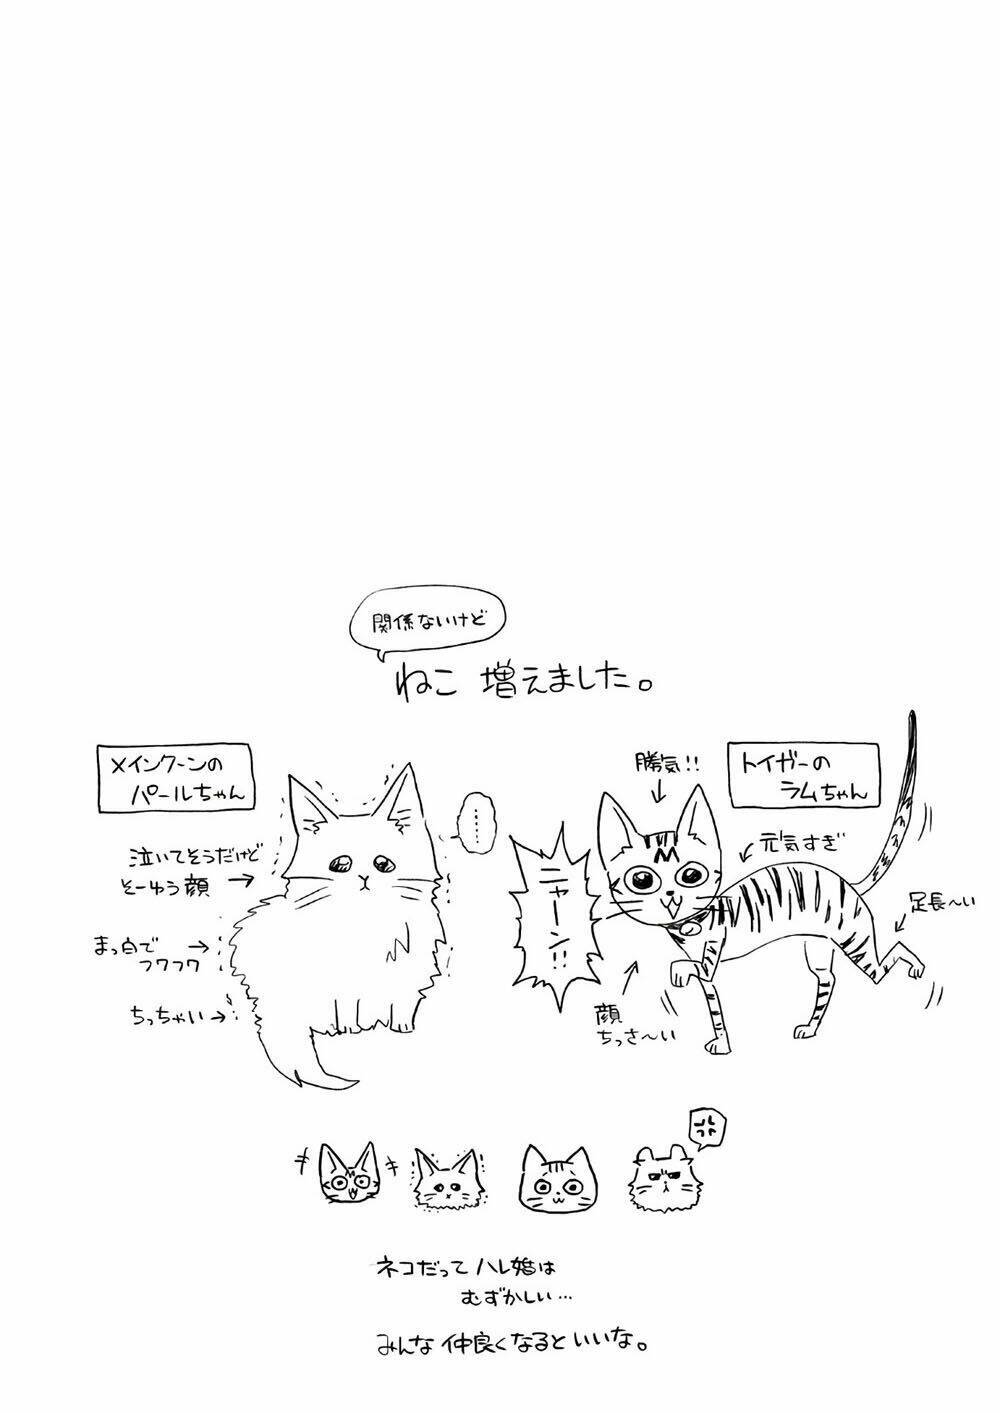 関係ないけど
ねこ 増えました。
メインクーンの
パールちゃん
泣いてそうだけど
そーゆう顔
まっ白で
フワフワ
ちっちゃい
………
ニャーン!!
勝気!!
トイガーの
ラムちゃん
元気すぎ
足長〜い
顔
ちっさ〜い
M
ネコだって ハレ婚は
むずかしい…
みんな 仲良くなると いいな。